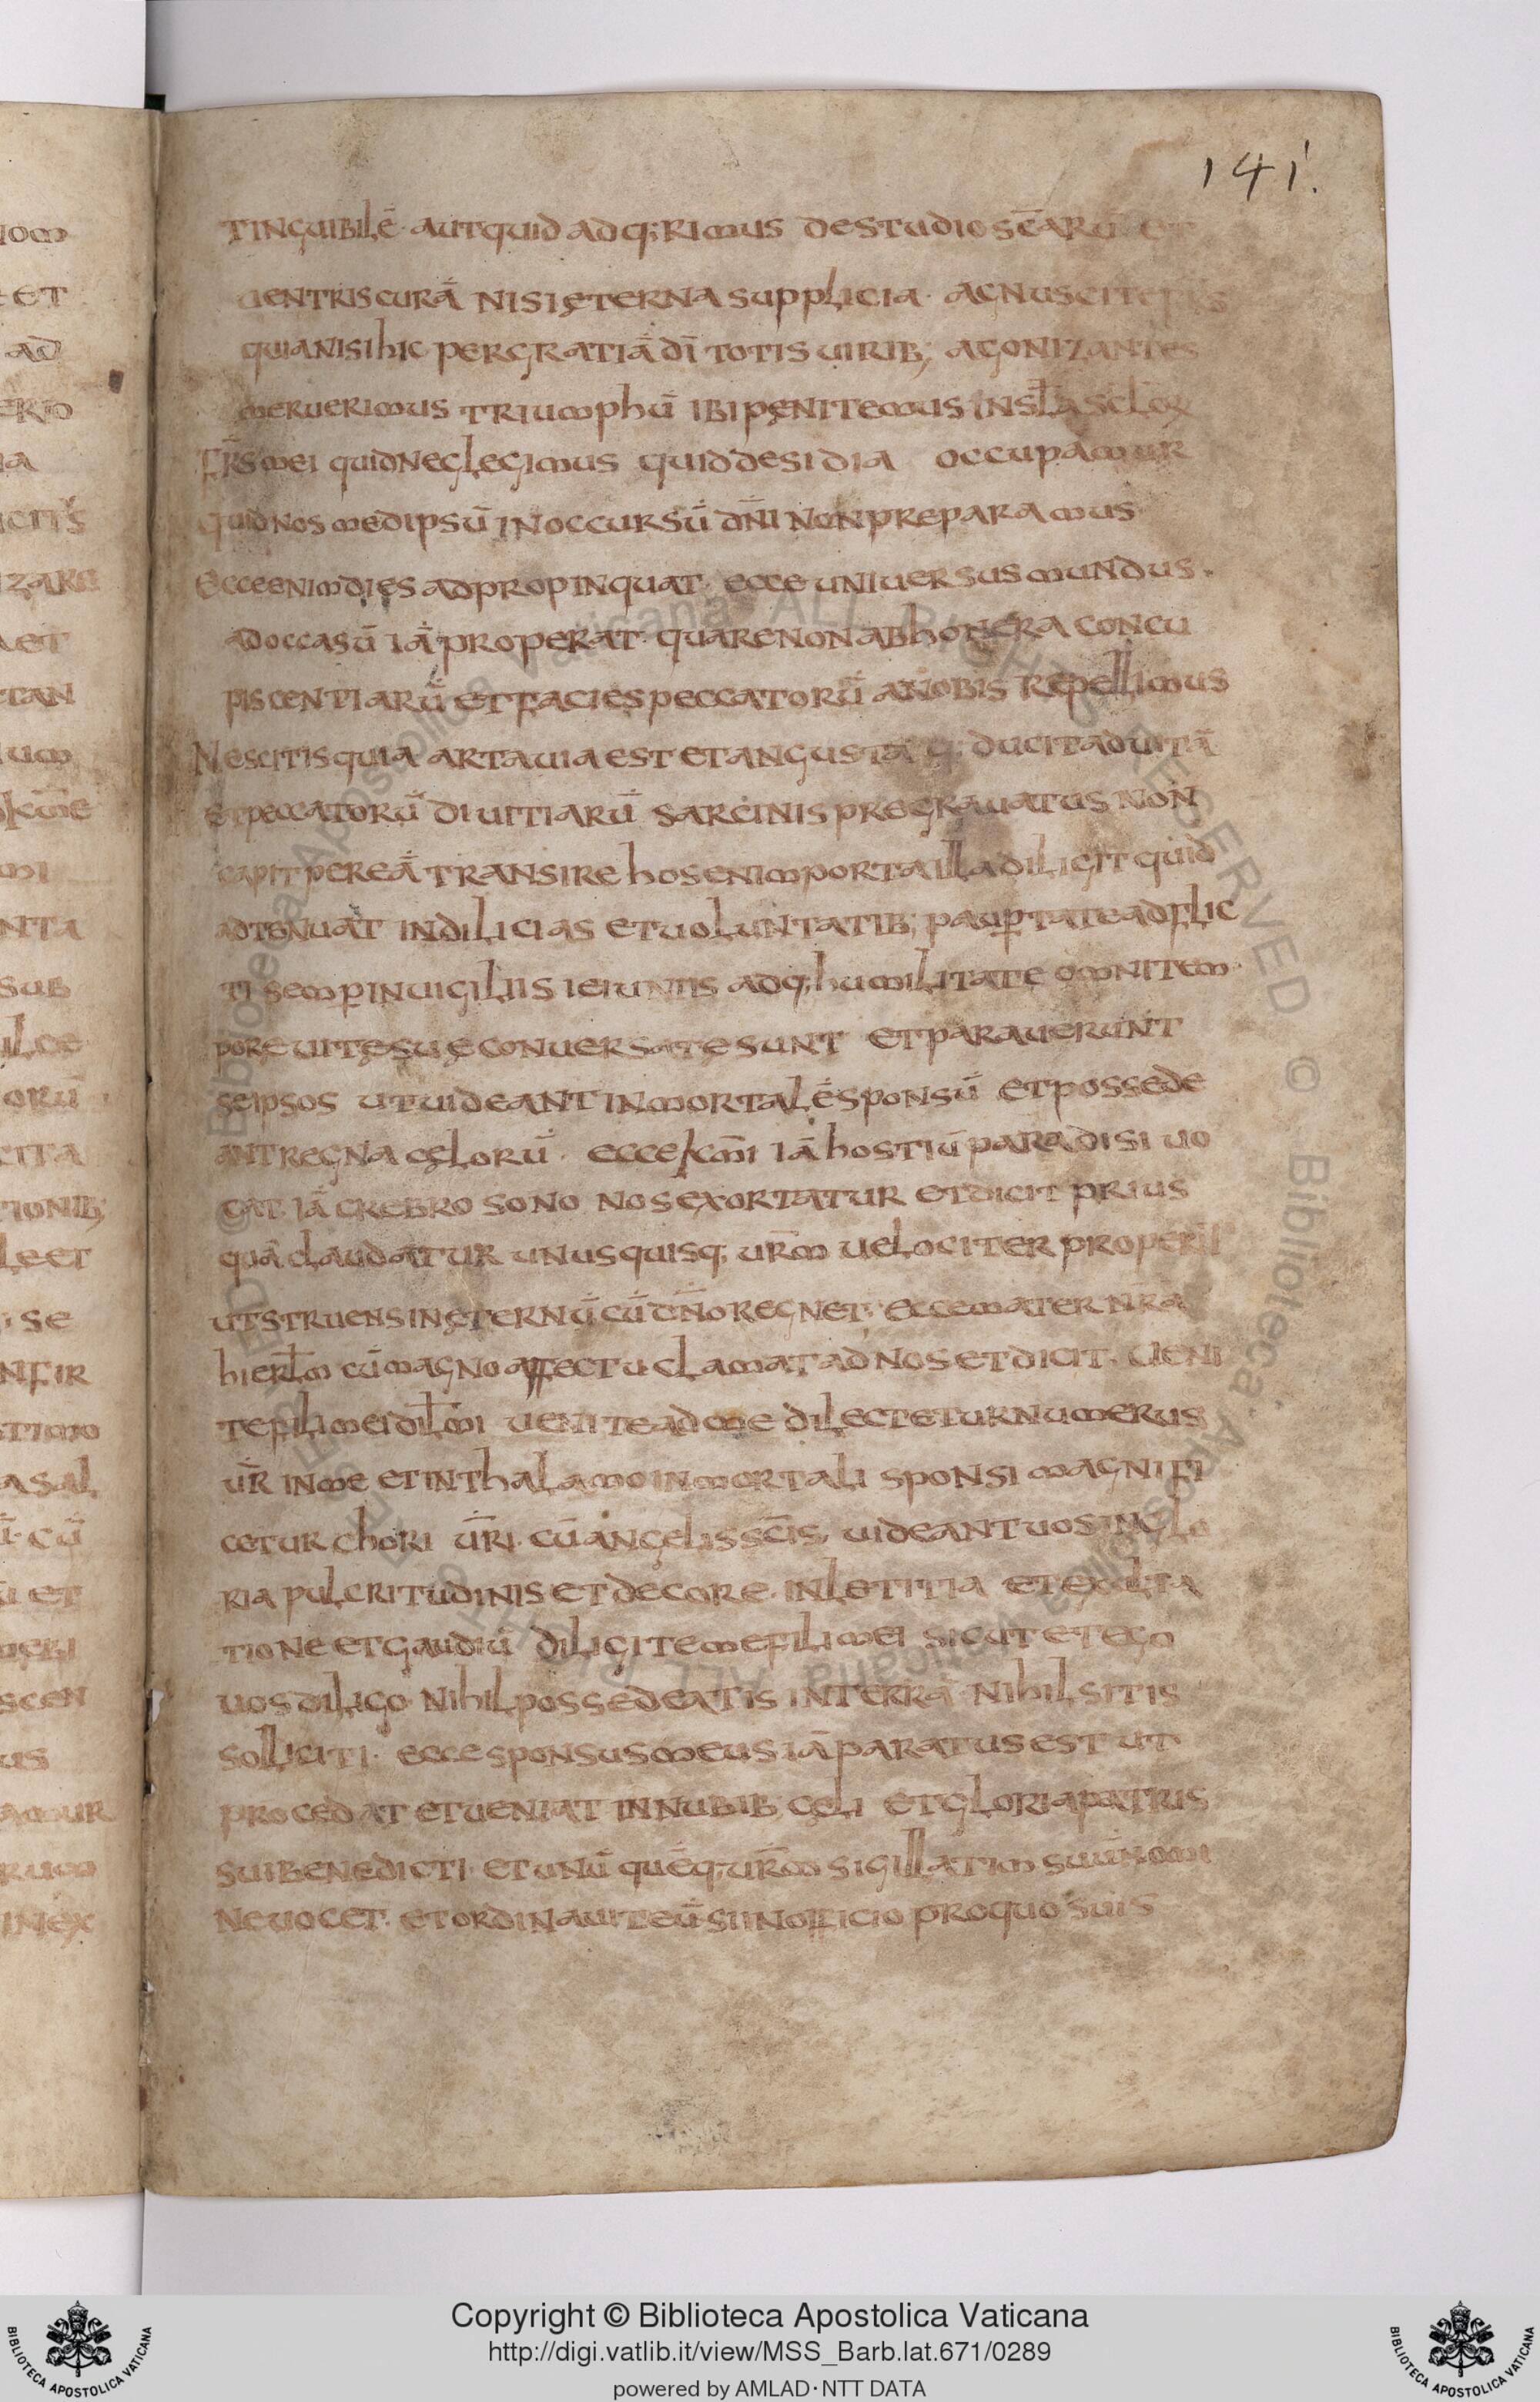 141.
TINGUIBILĒ· AUT QUID ADQ;RIMUS DE STUDIO SCARŪ ET
UENTRIS CURĀ NISI ĘTERNA SUPPLICIA· AGNUSCITE
QUIA NISI HIC PER GRATIĀ DĪ TOTIS UIRIB; AGONIZANTES
MERUERIMUS TRIUMPHŪ IBI PĘNITEMUS IN
FR̄S MEI QUID NEGLEGIMUS QUID DESIDIA OCCUPAMUR
QUID NOSMEDIPSŪ IN OCCURSŪ DN̄I NON PREPARAMUS
ECCE ENIM DIES ADPROPINQUAT· ECCE UNIUERSUS MUNDUS·
AD OCCASŪ IĀ PROPERAT· QUARE NON AB HONERA CONCU
PISCENTIARŪ ET FACIES PECCATORŪ A NOBIS REPELLIMUS
NESCITIS QUIA ARTA UIA EST ET ANGUSTA Q; DUCIT AD UITĀ
ET PECCATORŪ DIUITIARŪ SARCINIS PREGRAUATUS NON
CAPIT PER EĀ TRANSIRE HOS ENIM PORTA ILLA DILIGIT QUID
ADTENUAT IN DILICIAS ET UOLUNTATIB; PAUPTATE ADFLIC
TI SEMP IN UIGILIIS IEIUNIIS ADQ; HUMILITATE OMNI TEM
PORE UITĘ SUĘ CONUERSATE SUNT ET PARAUERUNT
SEIPSOS UT UIDEANT INMORTALĒ SPONSŪ ET POSSEDE
ANT REGNA CĘLORŪ· ECCE KM̄I IĀ HOSTIŪ PARADISI UO
CAT· IĀ CREBRO SONO NOS EXORTATUR ET DICIT PRIUS
QUĀ CLAUDATUR UNUSQUISQ; UR̄M UELOCITER PROPERIT
UT STRUENS IN ĘTERNŪ CŪ DN̄O REGNET· ECCE MATER NR̄A
HIERL̄M CŪ MAGNO AFFECTU CLAMAT AD NOS ET DICIT· UENI
TE FILI MEI DIL̄MI UENITE AD ME DILECTETUR NUMERUS
UR̄ IN ME ET IN THALAMO INMORTALI SPONSI MAGNIFI
CETUR CHORI UR̄I· CŪ ANGELIS SC̄IS, UIDEANT UOS IN GLO
RIA PULCRITUDINIS ET DECORE· IN LETITIA ET EXULTA
TIONE ET GAUDIŪ DILIGITE ME FILI MEI SICUT ET EGO
UOS DILIGO· NIHIL POSSEDEATIS IN TERRA· NIHIL SITIS
SOLLICITI· ECCE SPONSUS MEUS IĀ PARATUS EST UT
PROCEDAT ET UENIAT IN NUBIB; CĘLI ET GLORIA PATRIS
SUI BENEDICTI· ET UNŪQUĒQ; UR̄M SIGILLATIM SUŪ NOMI
NE UOCET· ET ORDINAUIT EŪ SI IN OFFICIO PRO QUO SUIS
Copyright © Biblioteca Apostolica Vaticana
http://digi.vatlib.it/view/MSS_Barb.lat.671/0289
powered by AMLAD·NTT DATA